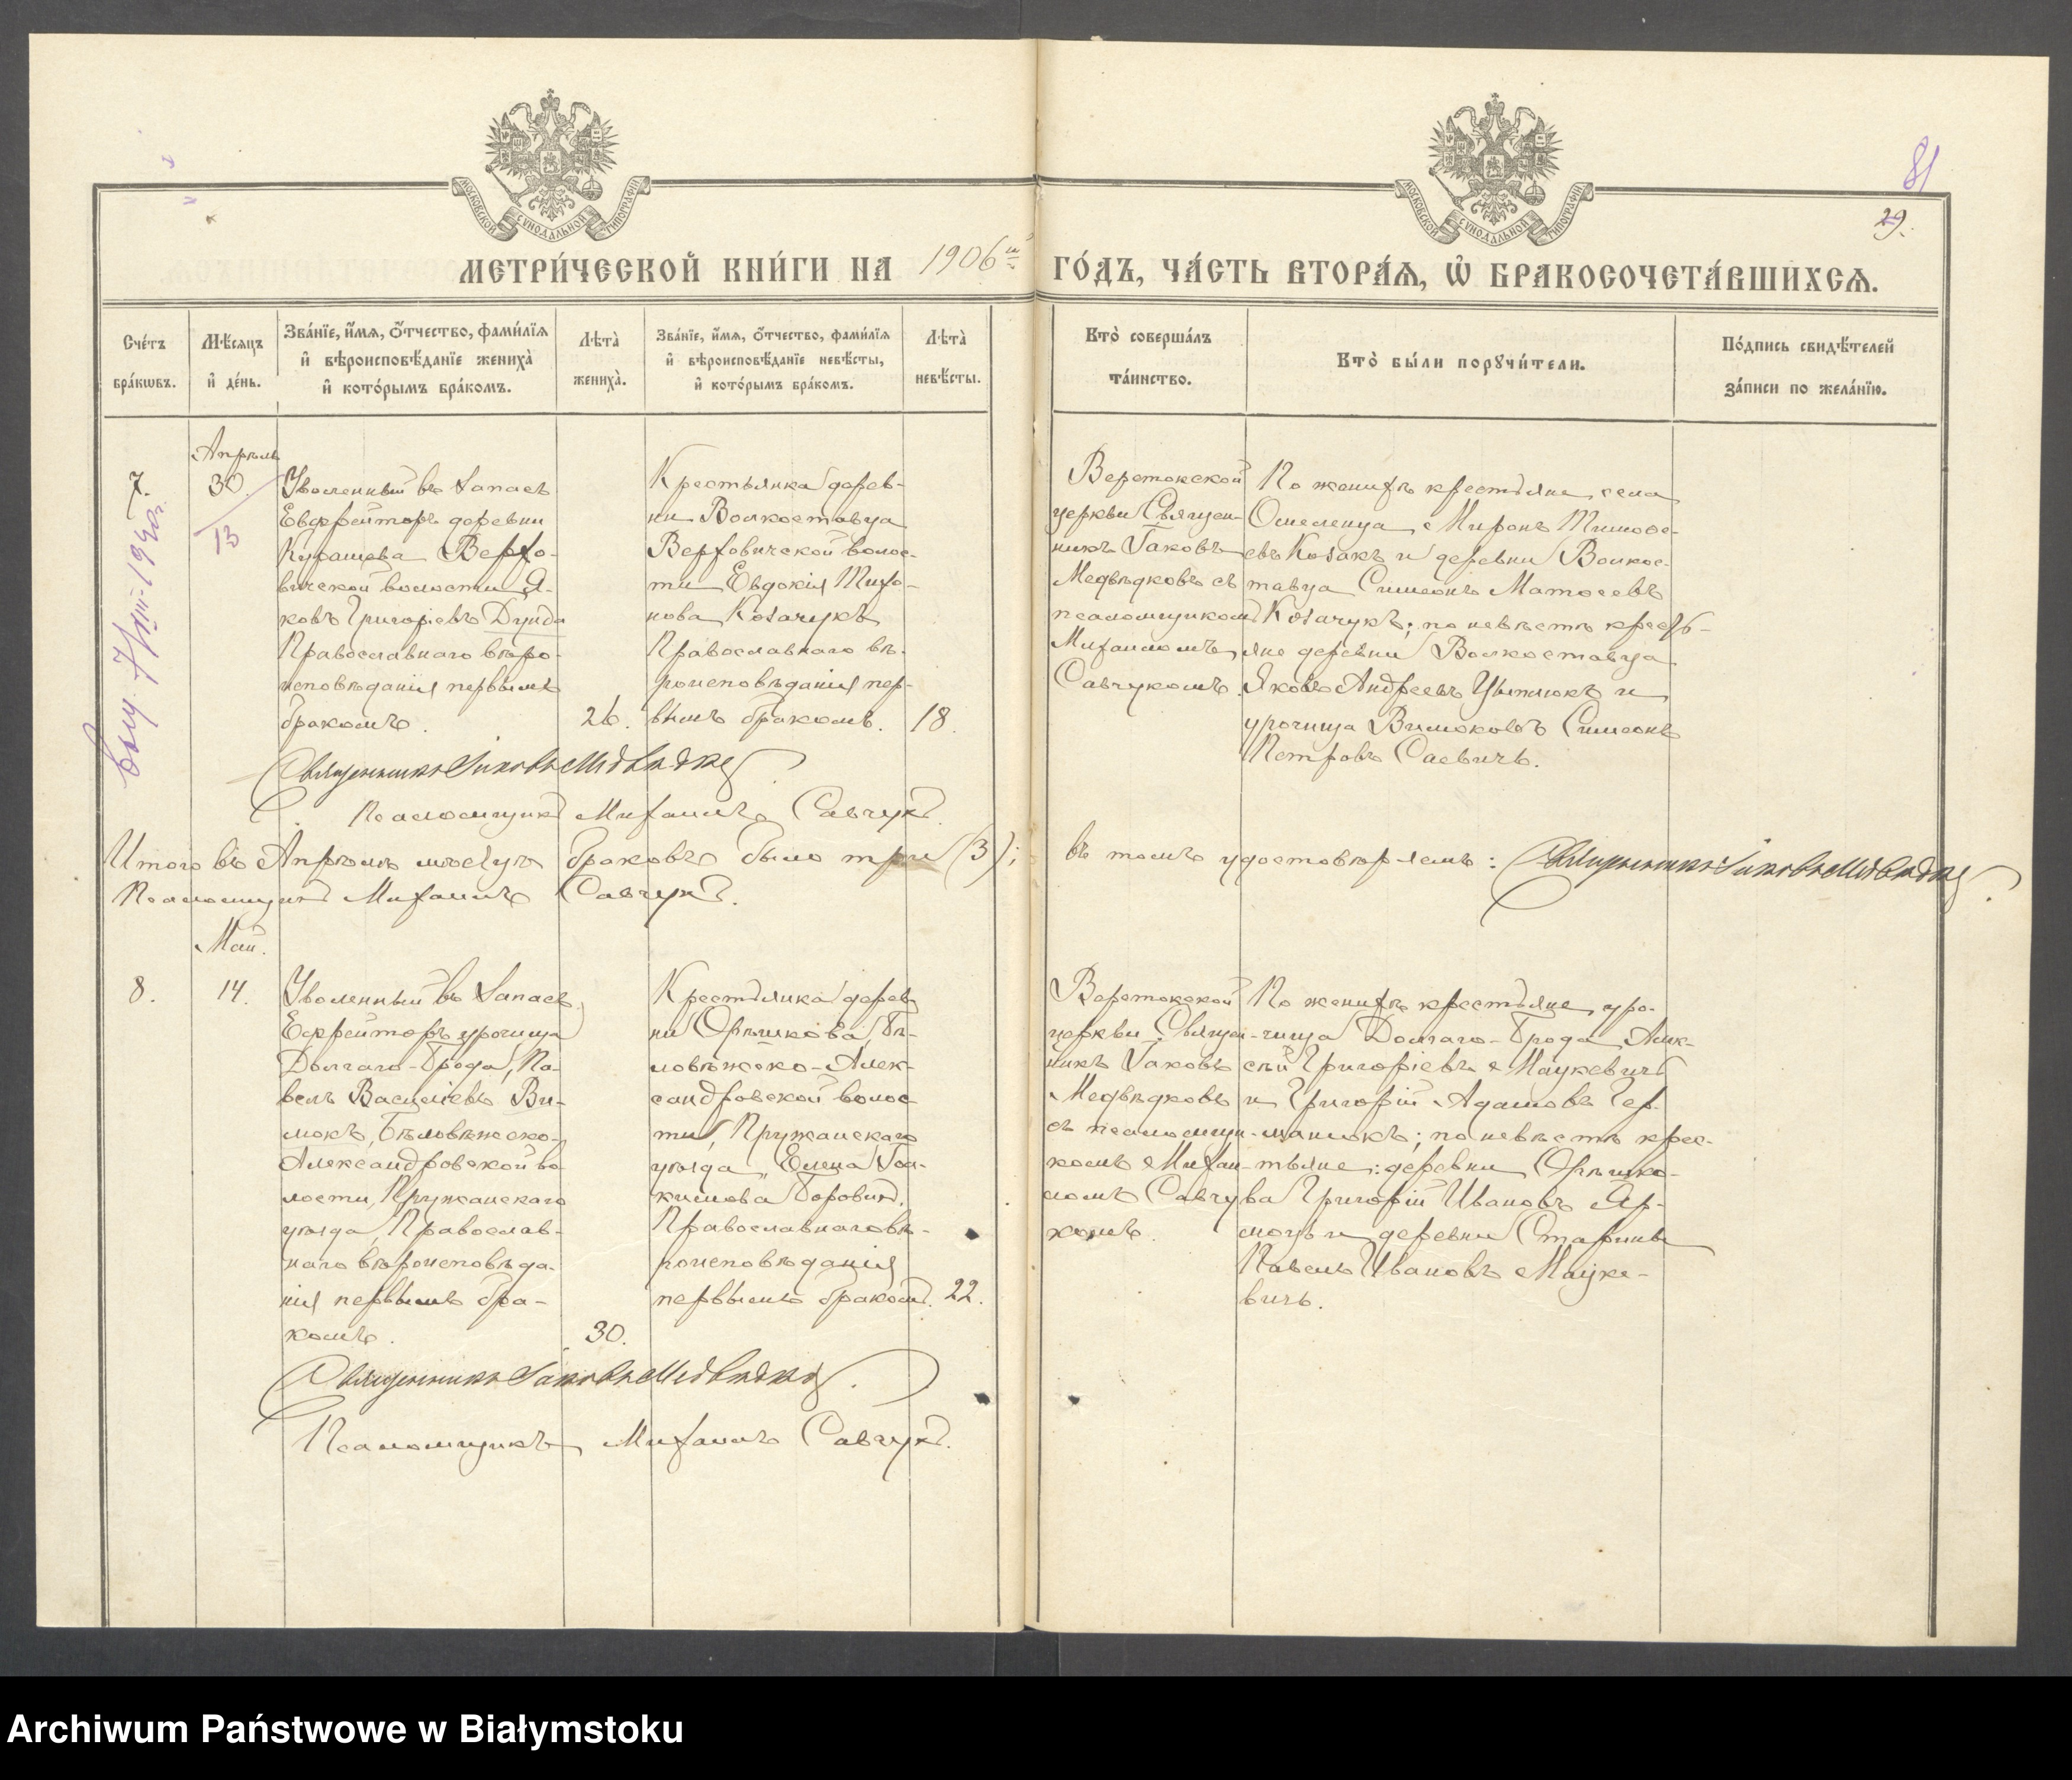 81
29.
МОСКОВСКОЙ СѴНОДАЛЬНОЙ ТИПОГРАФІИ
МОСКОВСКОЙ СѴНОДАЛЬНОЙ ТИПОГРАФІИ
МЕТРИ́ЧЕСКОЙ КНИ́ГИ НА 1906й ГО́ДЪ, ЧА́СТЬ ВТОРА́Ѧ, Ѡ҆ БРАКОСОЧЕТА́ВШИХСѦ.
Сче́тъ
бра́кѡвъ.
Мѣ́сяцъ
и҆ де́нь.
Зва́нїе, и҆́мя, ѻ҆́тчество, фами́лїя
и҆ вѣроисповѣ́данїе жениха̀
и҆ кото́рымъ бра́комъ.
Лѣта̀
жениха̀.
Зва́нїе, и҆́мя, ѻ҆́тчество, фами́лїя
и҆ вѣроисповѣ́данїе невѣ́сты,
и҆ кото́рымъ бра́комъ.
Лѣта̀
невѣ́сты.
Кто̀ соверша́лъ
та́инство.
Кто̀ бы́ли порꙋчи́тели.
По́дпись свидѣ́телей
за́писи по жела́нїю.
Апрѣль
7.
30.
13
Уволенный въ запасъ
Евфрейторъ деревни
Курашева Верхо-
вичской волости Я-
ковъ Григорьевъ Дунда
Православнаго вѣро-
исповѣданія первымъ
бракомъ.
26.
Крестьянка дерев-
ни Волкоставца
Верховичской волос-
ти Евдокія Тихо-
нова Козачукъ
Православнаго вѣ-
роисповѣданія пер-
вымъ бракомъ.
18.
Веретокской
церкви Священ-
никъ Іаковъ
Медвѣдковъ съ
псаломщикомъ
Михаиломъ
Савчукомъ
По женихѣ крестьяне села
Омеленца Миронъ Тимоѳе-
евъ Козакъ и деревни Волкос-
тавца Симеонъ Матѳеевъ
Козачукъ; по невѣстѣ кресть-
яне деревни Волкоставца
Яковъ Андреевъ и
урочища Вилюковъ Симеонъ
Петровъ Саевичъ.
Священникъ Іаковъ Медвѣдковъ.
Псаломщикъ Михаилъ Савчукъ.
Итого въ Апрѣлѣ мѣсяцѣ браковъ было три (3); въ томъ удостовѣряемъ: Священникъ Іаковъ Медвѣдковъ.
Псаломщикъ Михаилъ Савчукъ.
Май.
8.
14.
Уволенный въ запасъ,
Ефрейторъ урочища
Долгаго-Брода, Па-
велъ Василіевъ Ви-
люкъ, Бѣловѣжско-
Александровской во-
лости, Пружанскаго
уѣзда, Православ-
наго вѣроисповѣда-
нія первымъ бра-
комъ.
30.
Крестьянка дерев-
ни Орѣшкова, Бѣ-
ловѣжско-Алек-
сандровской волос-
ти, Пружанскаго
уѣзда, Елена Іоа-
кимова Боровикъ,
Православнаго вѣ-
роисповѣданія
первымъ бракомъ.
22.
Веретокской
церкви Священ-
никъ Іаковъ
Медвѣдковъ
съ псаломщи-
комъ Михаи-
ломъ Савчу-
комъ.
По женихѣ крестьяне уро-
чища Долгаго-Брода Алек-
сѣй Григорьевъ Мацкевичъ
и Григорій Адамовъ Гер-
манюкъ; по невѣстѣ крес-
тьяне: деревни Орѣшко-
ва Григорій Ивановъ Яр-
моцъ и деревни Старины
Павелъ Ивановъ Мацке-
вичъ.
Священникъ Іаковъ Медвѣдковъ.
Псаломщикъ Михаилъ Савчукъ.
Archiwum Państwowe w Białymstoku